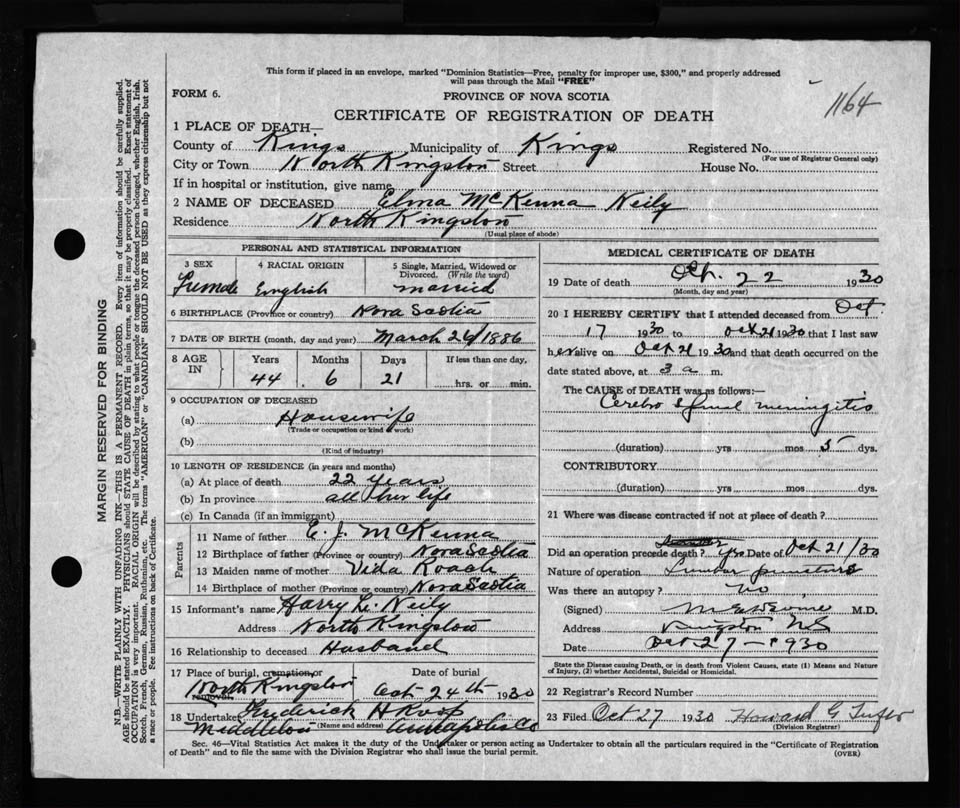 This form if placed in an envelope, marked "Dominion Statistics—Free, penalty for improper use, $300," and properly addressed
will pass through the Mail "FREE"
FORM 6.
PROVINCE OF NOVA SCOTIA
1164
CERTIFICATE OF REGISTRATION OF DEATH
1 PLACE OF DEATH—
County of Kings Municipality of Kings Registered No.
(For use of Registrar General only)
City or Town North Kingston Street House No.
If in hospital or institution, give name
2 NAME OF DECEASED Elma McKenna Neily
Residence North Kingston
(Usual place of abode)
PERSONAL AND STATISTICAL INFORMATION
3 SEX 4 RACIAL ORIGIN 5 Single, Married, Widowed or
Divorced. (Write the word)
Female English married
6 BIRTHPLACE (Province or country) Nova Scotia
7 DATE OF BIRTH (month, day and year) March 26/1886
8 AGE IN Years Months Days If less than one day,
44 6 21 hrs. or min.
9 OCCUPATION OF DECEASED
(a) Housewife
(Trade or occupation or kind of work)
(b)
(Kind of industry)
10 LENGTH OF RESIDENCE (in years and months)
(a) At place of death 22 years
(b) In province all her life
(c) In Canada (if an immigrant)
Parents
11 Name of father E. J. McKenna
12 Birthplace of father (Province or country) Nova Scotia
13 Maiden name of mother Vida Roach
14 Birthplace of mother (Province or country) Nova Scotia
15 Informant's name Harry L. Neily
Address North Kingston
16 Relationship to deceased Husband
17 Place of burial, cremation or removal Date of burial
North Kingston Oct 24th 1930
18 Undertaker Frederick H Roop
(Name and address)
Middleton Annapolis Co
MEDICAL CERTIFICATE OF DEATH
19 Date of death Oct. 22 1930
(Month, day and year)
20 I HEREBY CERTIFY that I attended deceased from Oct
17 1930 to Oct 21 1930 that I last saw
her alive on Oct 21 1930 and that death occurred on the
date stated above, at 3 a m.
The CAUSE of DEATH was as follows:—
Cerebro spinal meningitis
(duration) yrs mos 5 dys.
CONTRIBUTORY
(duration) yrs. mos dys.
21 Where was disease contracted if not at place of death?
Did an operation precede death? yes Date of Oct 21/30
Nature of operation Lumbar puncture
Was there an autopsy? no
(Signed) M.D.
Address Kingston NS
Date Oct 27—1930
State the Disease causing Death, or in death from Violent Causes, state (1) Means and Nature
of Injury, (2) whether Accidental, Suicidal or Homicidal.
22 Registrar's Record Number
23 Filed Oct 27 1930 Howard G
(Division Registrar)
Sec. 46—Vital Statistics Act makes it the duty of the Undertaker or person acting as Undertaker to obtain all the particulars required in the "Certificate of Registration
of Death" and to file the same with the Division Registrar who shall issue the burial permit.
(OVER)
MARGIN RESERVED FOR BINDING
N.B.—WRITE PLAINLY WITH UNFADING INK—THIS IS A PERMANENT RECORD. Every item of information should be carefully supplied.
AGE should be stated EXACTLY. PHYSICIANS should STATE CAUSE OF DEATH in plain terms, so that it may be properly classified. Exact statement of
OCCUPATION is very important. RACIAL ORIGIN will be described by stating to what people or tongue the deceased person belonged, whether English, Irish,
Scotch, French, German, Russian, Ruthenian, etc. The terms "AMERICAN" or "CANADIAN" SHOULD NOT BE USED as they express citizenship but not
a race or people. See instructions on back of Certificate.